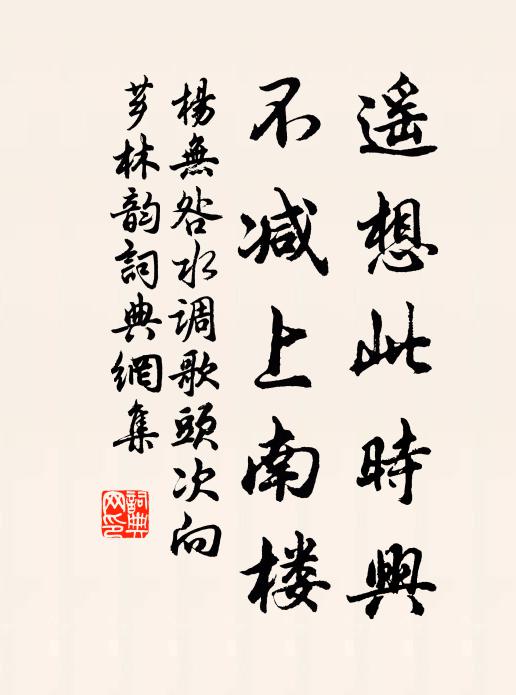 遥想此時興
不减上南楼
楊無咎水调歌頭次向
芗林韵詞典網集
詞典网印